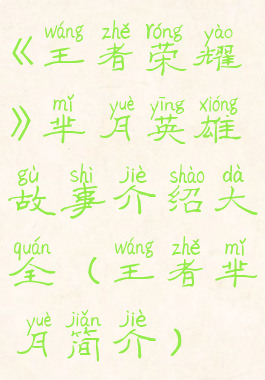 wáng zhě róng yào
《王者荣耀
mǐ yuè yīng xióng
》芈月英雄
gù shì jiè shào dà
故事介绍大
quán wáng zhě mǐ
全（王者芈
yuè jiǎn jiè
月简介）